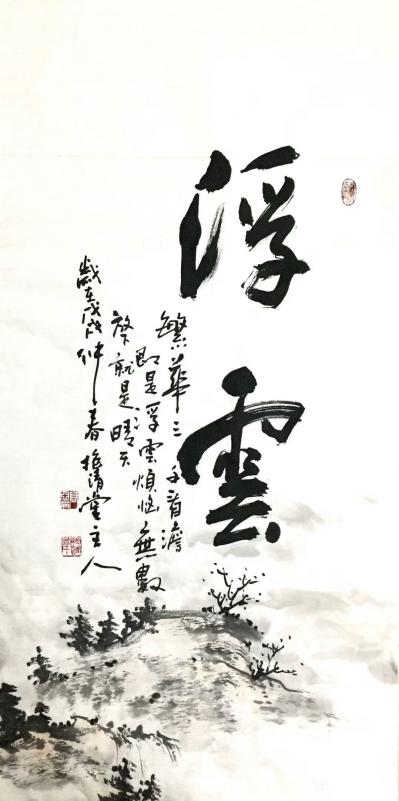 浮雲
繁華三千看淡
即是浮雲煩惱無數
放下就是晴天
歲在戊戌仲春 清堂主人